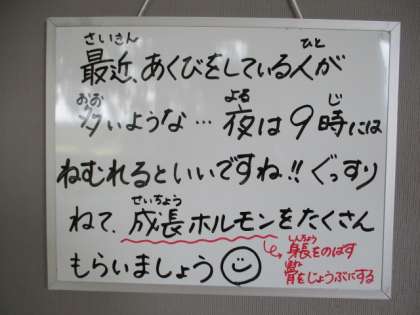 最近、あくびをしている人が
多いような… 夜は9時には
ねむれるといいですね!! ぐっすり
ねて、成長ホルモンをたくさん
もらいましょう
さいきん
ひと
おお
よる
じ
せいちょう
しんちょう
身長をのばす
ほね
骨をじょうぶにする